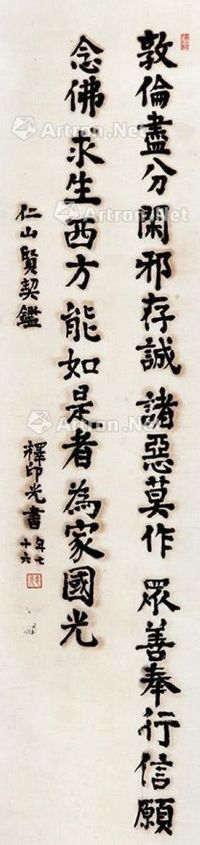 敦倫盡分閑邪存誠諸惡莫作眾善奉行信願
念佛求生西方能如是者為家國光
仁山賢契鑑
釋印光書
年七
十六
Artron.Net
Artron.Net
Artron.Net
Artron.Net